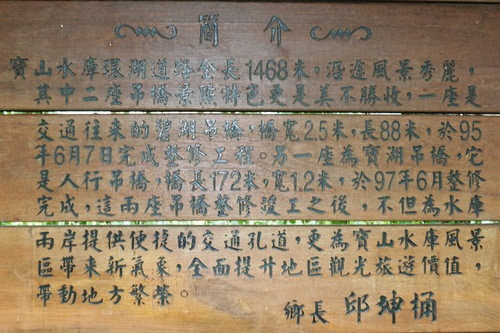 簡介
寶山水庫環湖道路全長1468米。沿途風景秀麗，
其中二座吊橋景點特色更是美不勝收，一座是
交通往來的碧湖吊橋，橋寬2.5米，長88米，於95
年6月7日完成整修工程。另一座為寶湖吊橋，它
是人行吊橋，橋長172米，寬1.2米，於97年6月整修
完成，這兩座吊橋整修竣工之後，不但為水庫
兩岸提供便捷的交通孔道，更為寶山水庫風景
區帶來新氣象，全面提升地區觀光旅遊價值，
帶動地方繁榮。
鄉長 邱坤桶